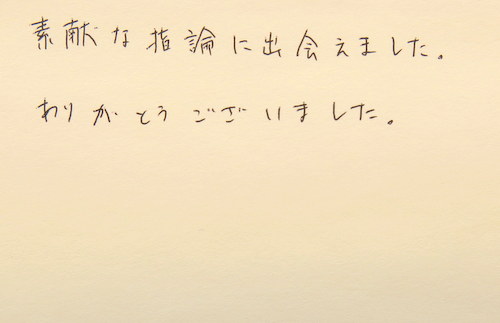 素献な指論に出会えました。
わりがとうございました。